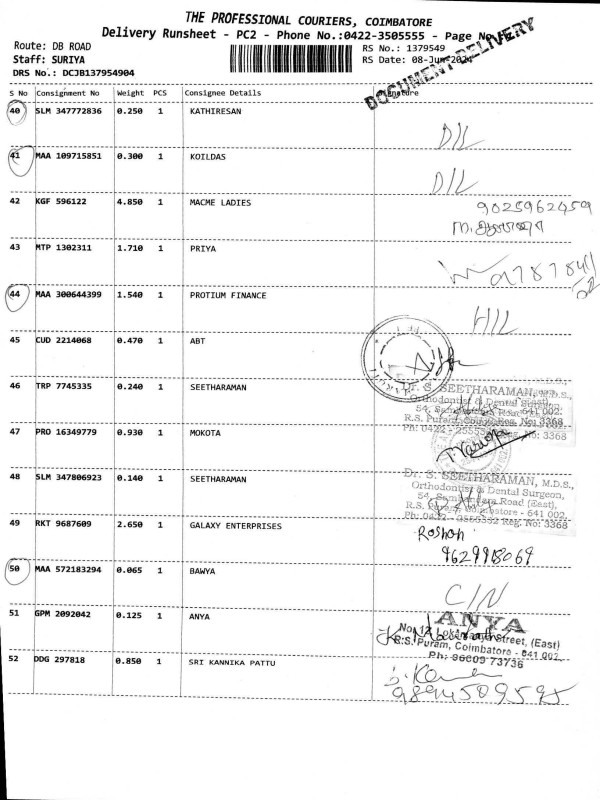 THE PROFESSIONAL COURIERS, COIMBATORE
Delivery Runsheet - PC2 - Phone No.:0422-3505555 - Page No
DOCUMENT DELIVERY
Route: DB ROAD
RS No.: 1379549
Staff: SURIYA
RS Date: 08-Jun-2024
DRS No.: DCJB137954904
S No Consignment No Weight PCS Consignee Details Signature
40 SLM 347772836 0.250 1 KATHIRESAN
D/L
41 MAA 109715851 0.300 1 KOILDAS
D/L
42 KGF 596122 4.850 1 MACME LADIES
9025962459
43 MTP 1302311 1.710 1 PRIYA
44 MAA 300644399 1.540 1 PROTIUM FINANCE
H/L
45 CUD 2214068 0.470 1 ABT
46 TRP 7745335 0.240 1 SEETHARAMAN
Dr. S. SEETHARAMAN, M.D.S.,
Orthodontist & Dental Surgeon,
641 002.
R.S. Puram, Reg. No: 3368
47 PRO 16349779 0.930 1 MOKOTA
48 SLM 347806923 0.140 1 SEETHARAMAN
Dr. S. SEETHARAMAN, M.D.S.,
Orthodontist & Dental Surgeon,
54, Road (East),
R.S. Puram, Coimbatore - 641 002.
Ph: 0422 - Reg. No: 3368
49 RKT 9687609 2.650 1 GALAXY ENTERPRISES
Roshan
9629918069
50 MAA 572183294 0.065 1 BAWYA
C/N
51 GPM 2092042 0.125 1 ANYA
ANYA
Street, (East)
R.S. Puram, Coimbatore - 641 002.
Ph: 96009 73736
52 DDG 297818 0.850 1 SRI KANNIKA PATTU
9894509595